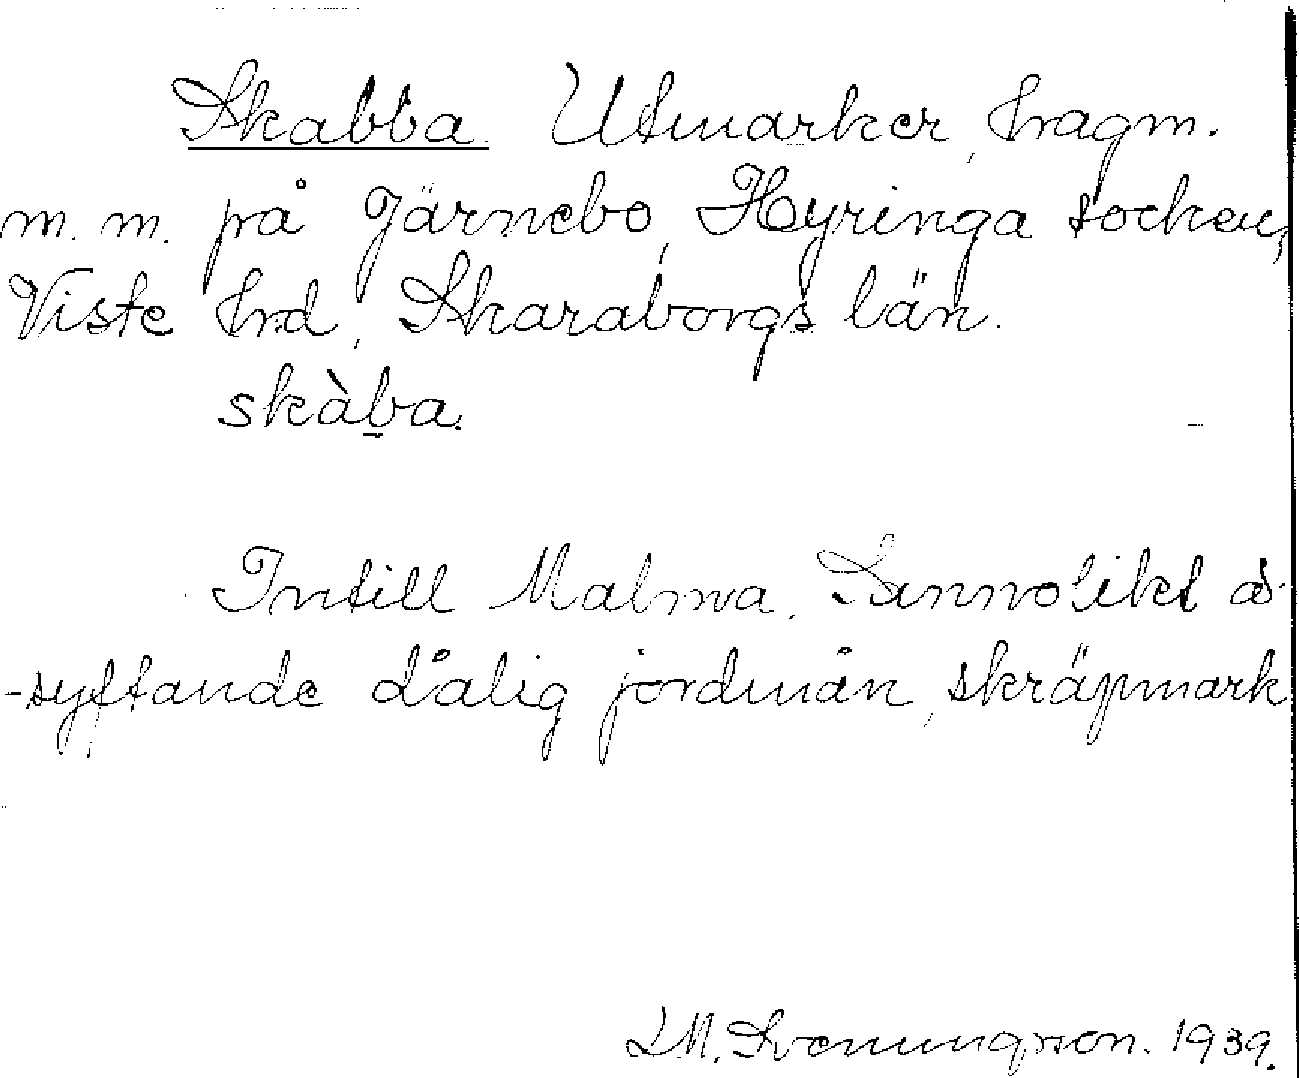 Skabba. Utmarker, hagm.
m. m. på Järnebo, Hyringa socken,
Viste hrd, Skaraborgs län.
skàb̠a.
Intill Malma. Sannolikt å-
-syftande dålig jordmån, skräpmark
LM. Svenungsson. 1939.